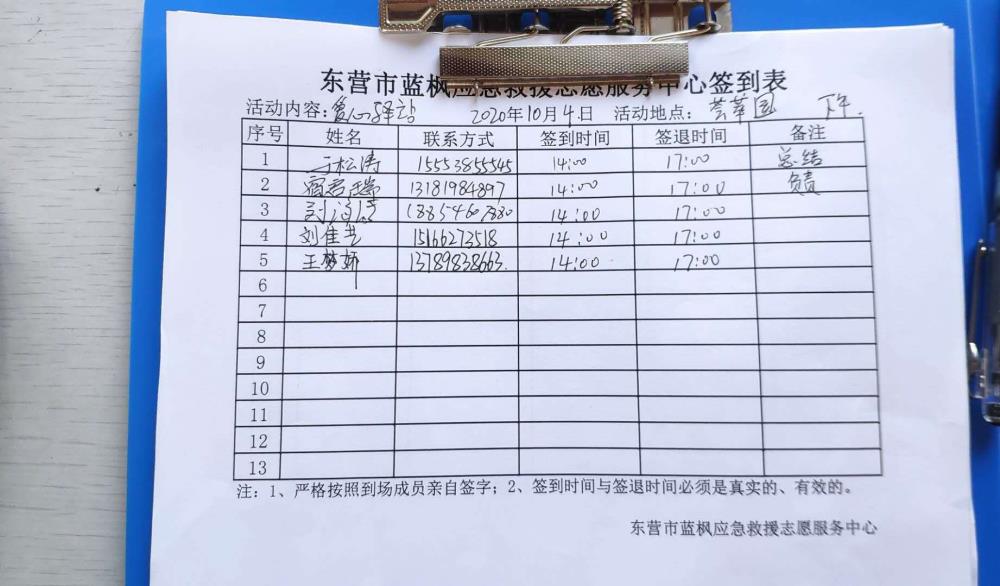 东营市蓝枫应急救援志愿服务中心签到表
活动内容:爱心驿站 2020年10月4日 活动地点:荟萃园 下午.
序号 姓名 联系方式 签到时间 签退时间 备注
1 于松涛 15553855545 14:00 17:00 总结
2 13181984897 14:00 17:00 负责
3 14:00 17:00
4 刘佳艺 15166273518 14:00 17:00
5 王梦娇 13789838663. 14:00 17:00
6
7
8
9
10
11
12
13
注:1、严格按照到场成员亲自签字;2、签到时间与签退时间必须是真实的、有效的。
东营市蓝枫应急救援志愿服务中心